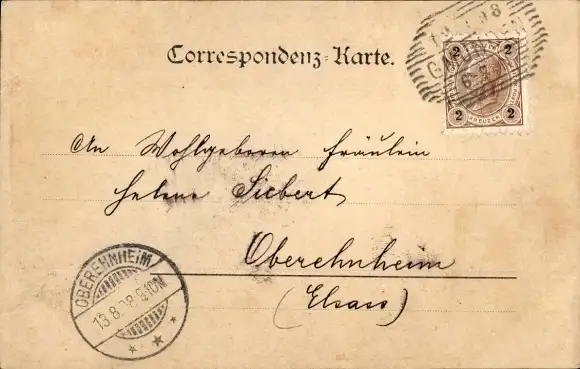 Correspondenz-Karte.
2 2
2 KREUZER 2
An Wohlgeboren Fräulein
Helene Siebert
Oberehnheim
(Elsass)
OBEREHNHEIM
13.8.98.9-10N.